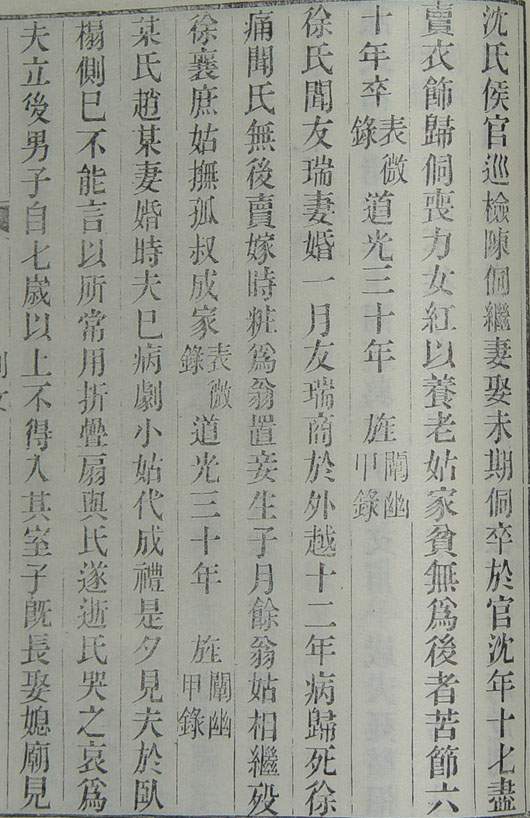 沈氏侯官巡檢陳侗繼妻娶未期侗卒於官沈年十七盡
賣衣飾歸侗喪力女紅以養老姑家貧無爲後者苦節六
十年卒表微錄道光三十年 旌闡幽甲錄
徐氏聞友瑞妻婚一月友瑞商於外越十二年病歸死徐
痛聞氏無後賣嫁時粧爲翁置妾生子月餘翁姑相繼歿
徐襄庶姑撫孤叔成家表微錄道光三十年 旌闡幽甲錄
某氏趙某妻婚時夫巳病劇小姑代成禮是夕見夫於臥
榻側巳不能言以所常用折疊扇與氏遂逝氏哭之哀爲
夫立後男子自七歲以上不得入其室子旣長娶媳廟見